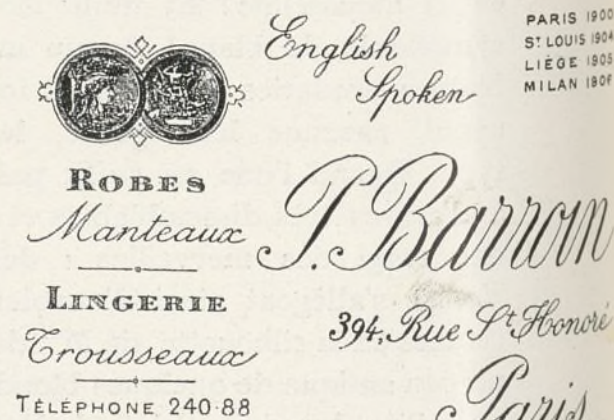 English
Spoken
PARIS 1900
ST LOUIS 1904
LIÈGE 1905
MILAN 1906
ROBES
Manteaux
LINGERIE
Trousseaux
TÉLÉPHONE 240-88
P. Barroin
394, Rue St Honoré
Paris